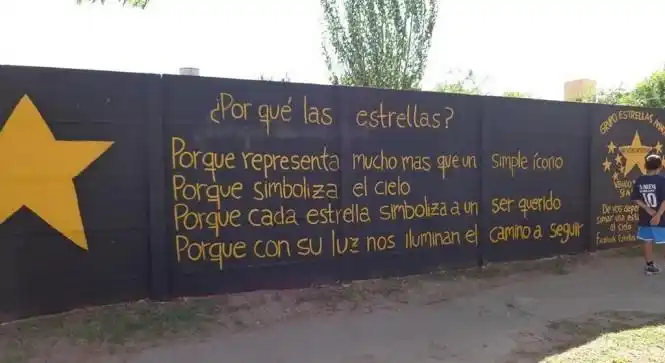 ¿Por qué las estrellas?
Porque representa mucho mas que un simple ícono
Porque simboliza el cielo
Porque cada estrella simboliza a un ser querido
Porque con su luz nos iluminan el camino a seguir
GRUPO ESTRELLAS
De vos depe
sumar una est
al cielo
Facebook Estrellas
10